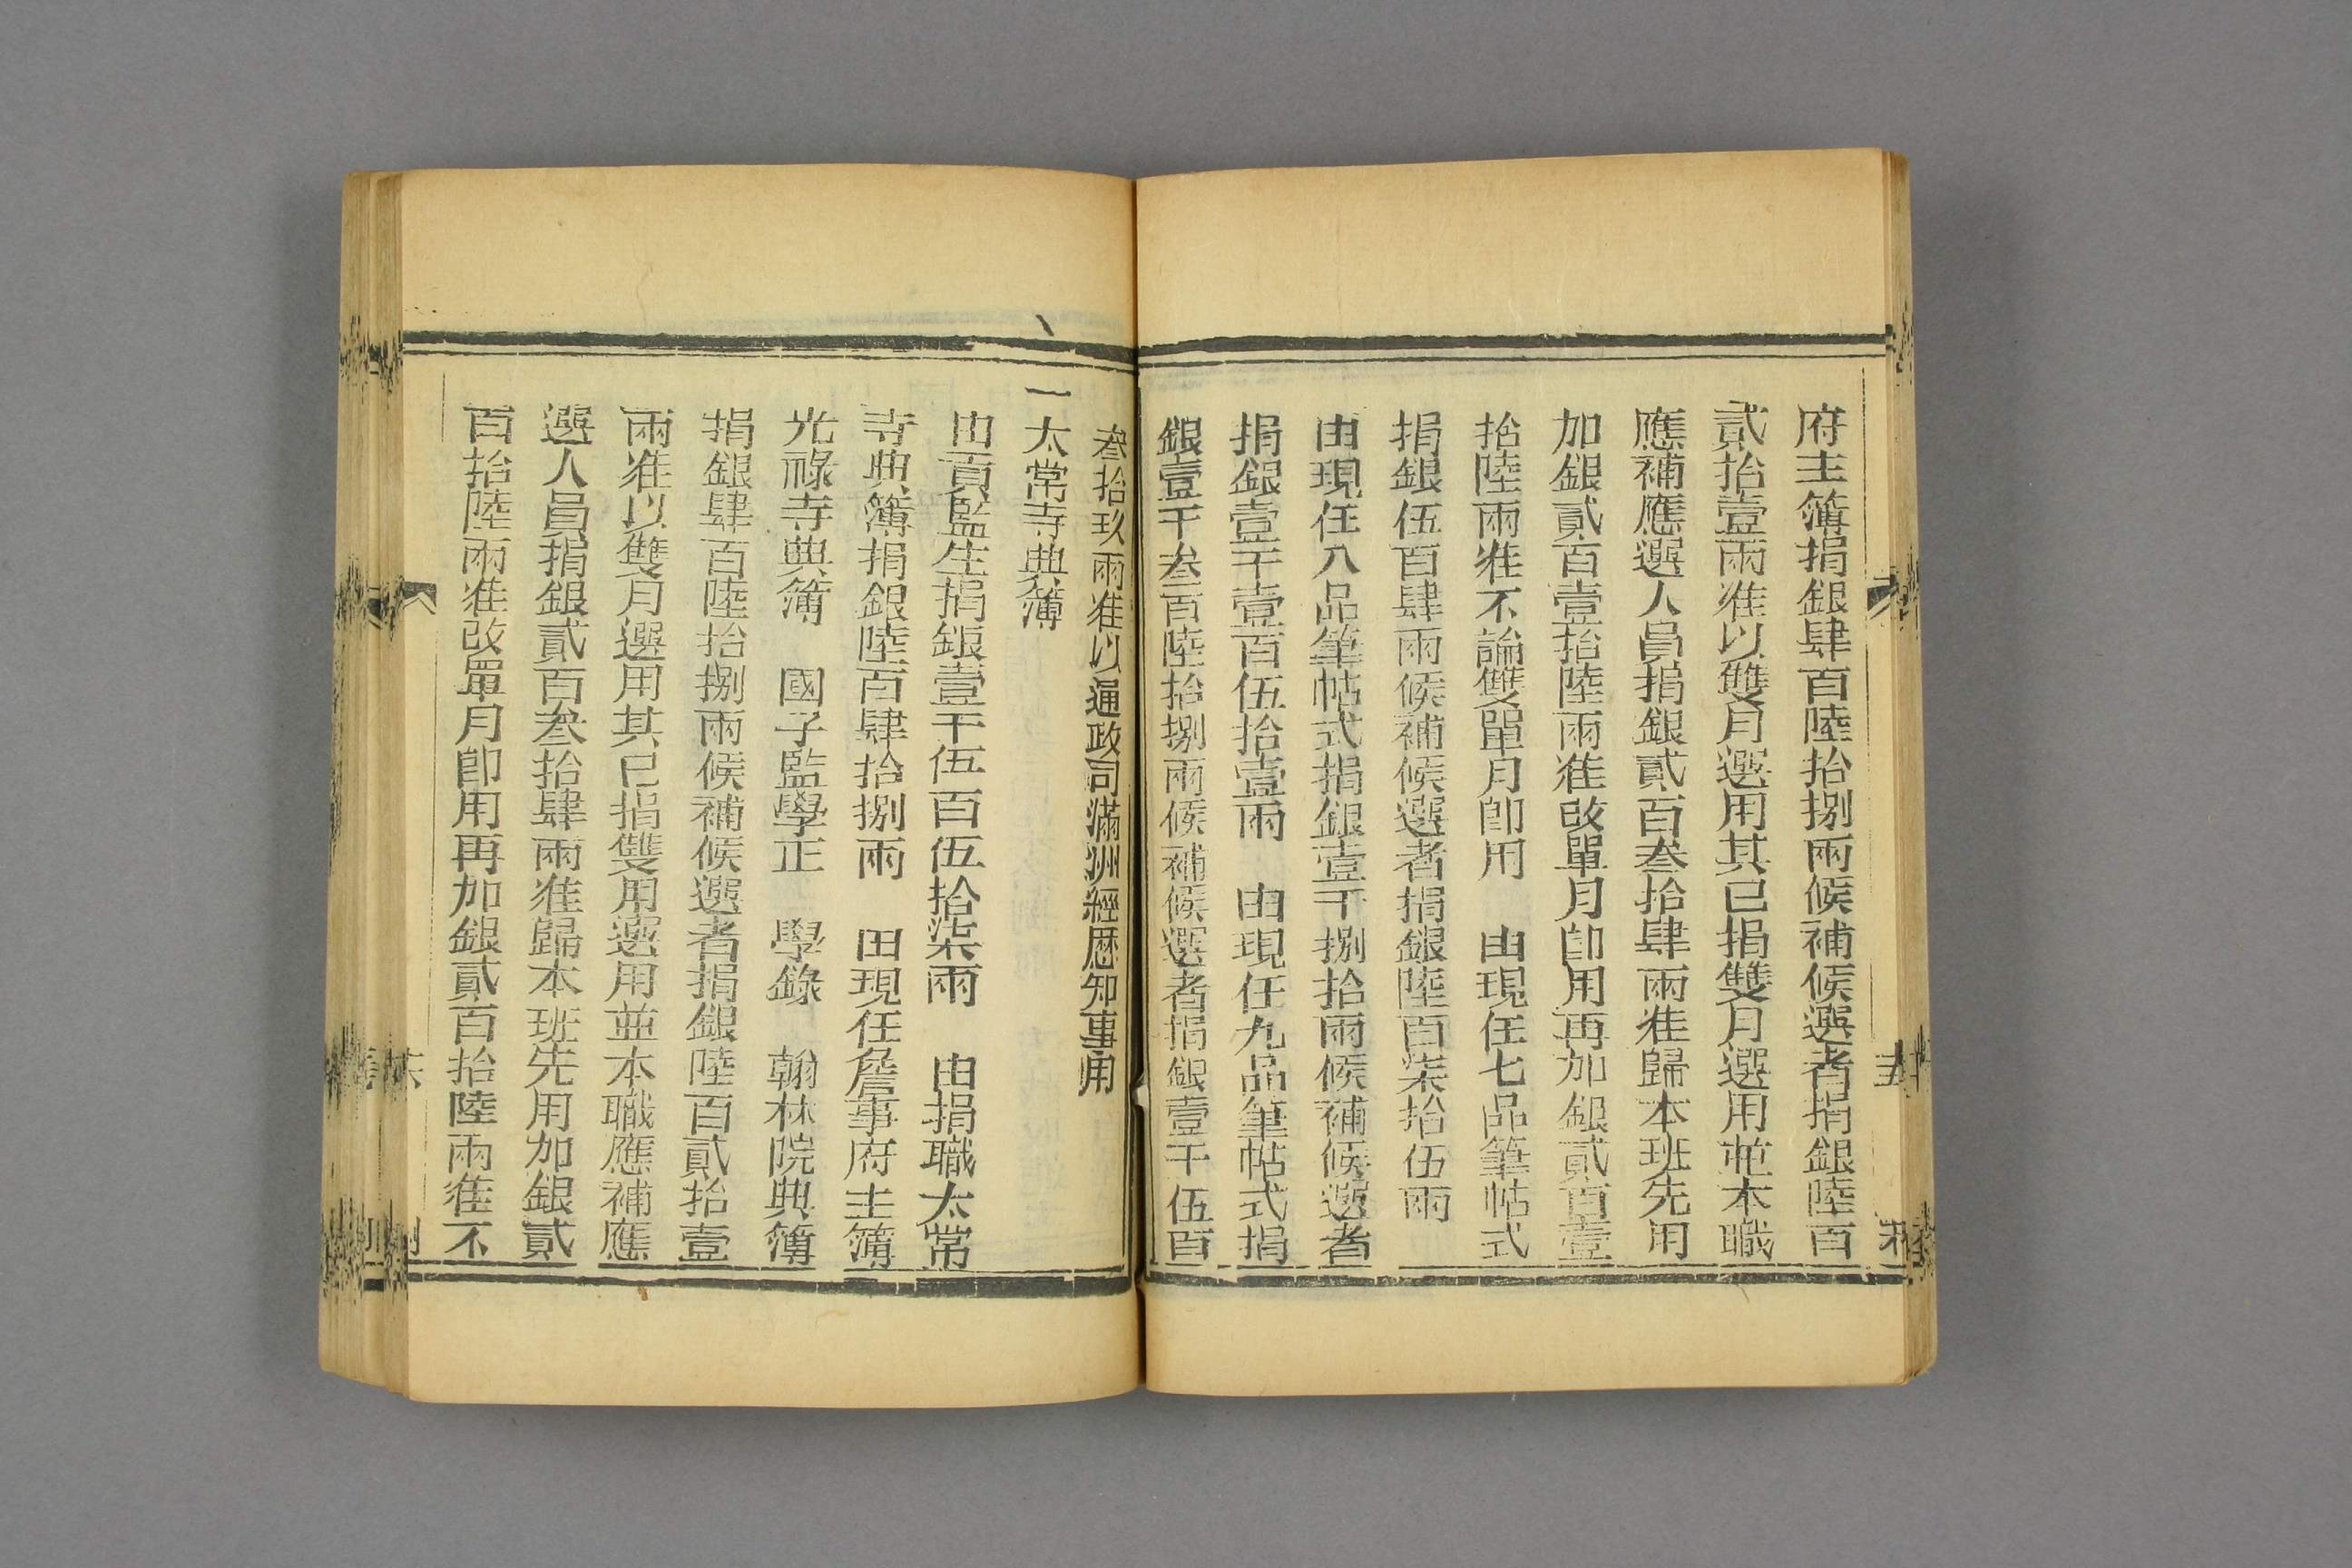 府主簿捐銀肆百陸拾捌兩候補候選者捐銀陸百
貳拾壹兩准以雙月選用其已捐雙月選用並本職
應補應選人員捐銀貳百叁拾肆兩准歸本班先用
加銀貳百壹拾陸兩准改單月卽用再加銀貳百壹
拾陸兩准不論雙單月卽用　由現任七品筆帖式
捐銀伍百肆兩候補候選者捐銀陸百柒拾伍兩
由現任八品筆帖式捐銀壹千捌拾兩候補候選者
捐銀壹千壹百伍拾壹兩　由現任九品筆帖式捐
銀壹千叁百陸拾捌兩候補候選者捐銀壹千伍百
叁拾玖兩准以通政司滿洲經歷知事用
一太常寺典簿
由貢監生捐銀壹千伍百伍拾柒兩　由捐職太常
寺典簿捐銀陸百肆拾捌兩　由現任詹事府主簿
光祿寺典簿　國子監學正　學錄　翰林院典簿
捐銀肆百陸拾捌兩候補候選者捐銀陸百貳拾壹
兩准以雙月選用其已捐雙用選用並本職應補應
選人員捐銀貳百叁拾肆兩准歸本班先用加銀貳
百拾陸兩准改單月卽用再加銀貳百拾陸兩准不